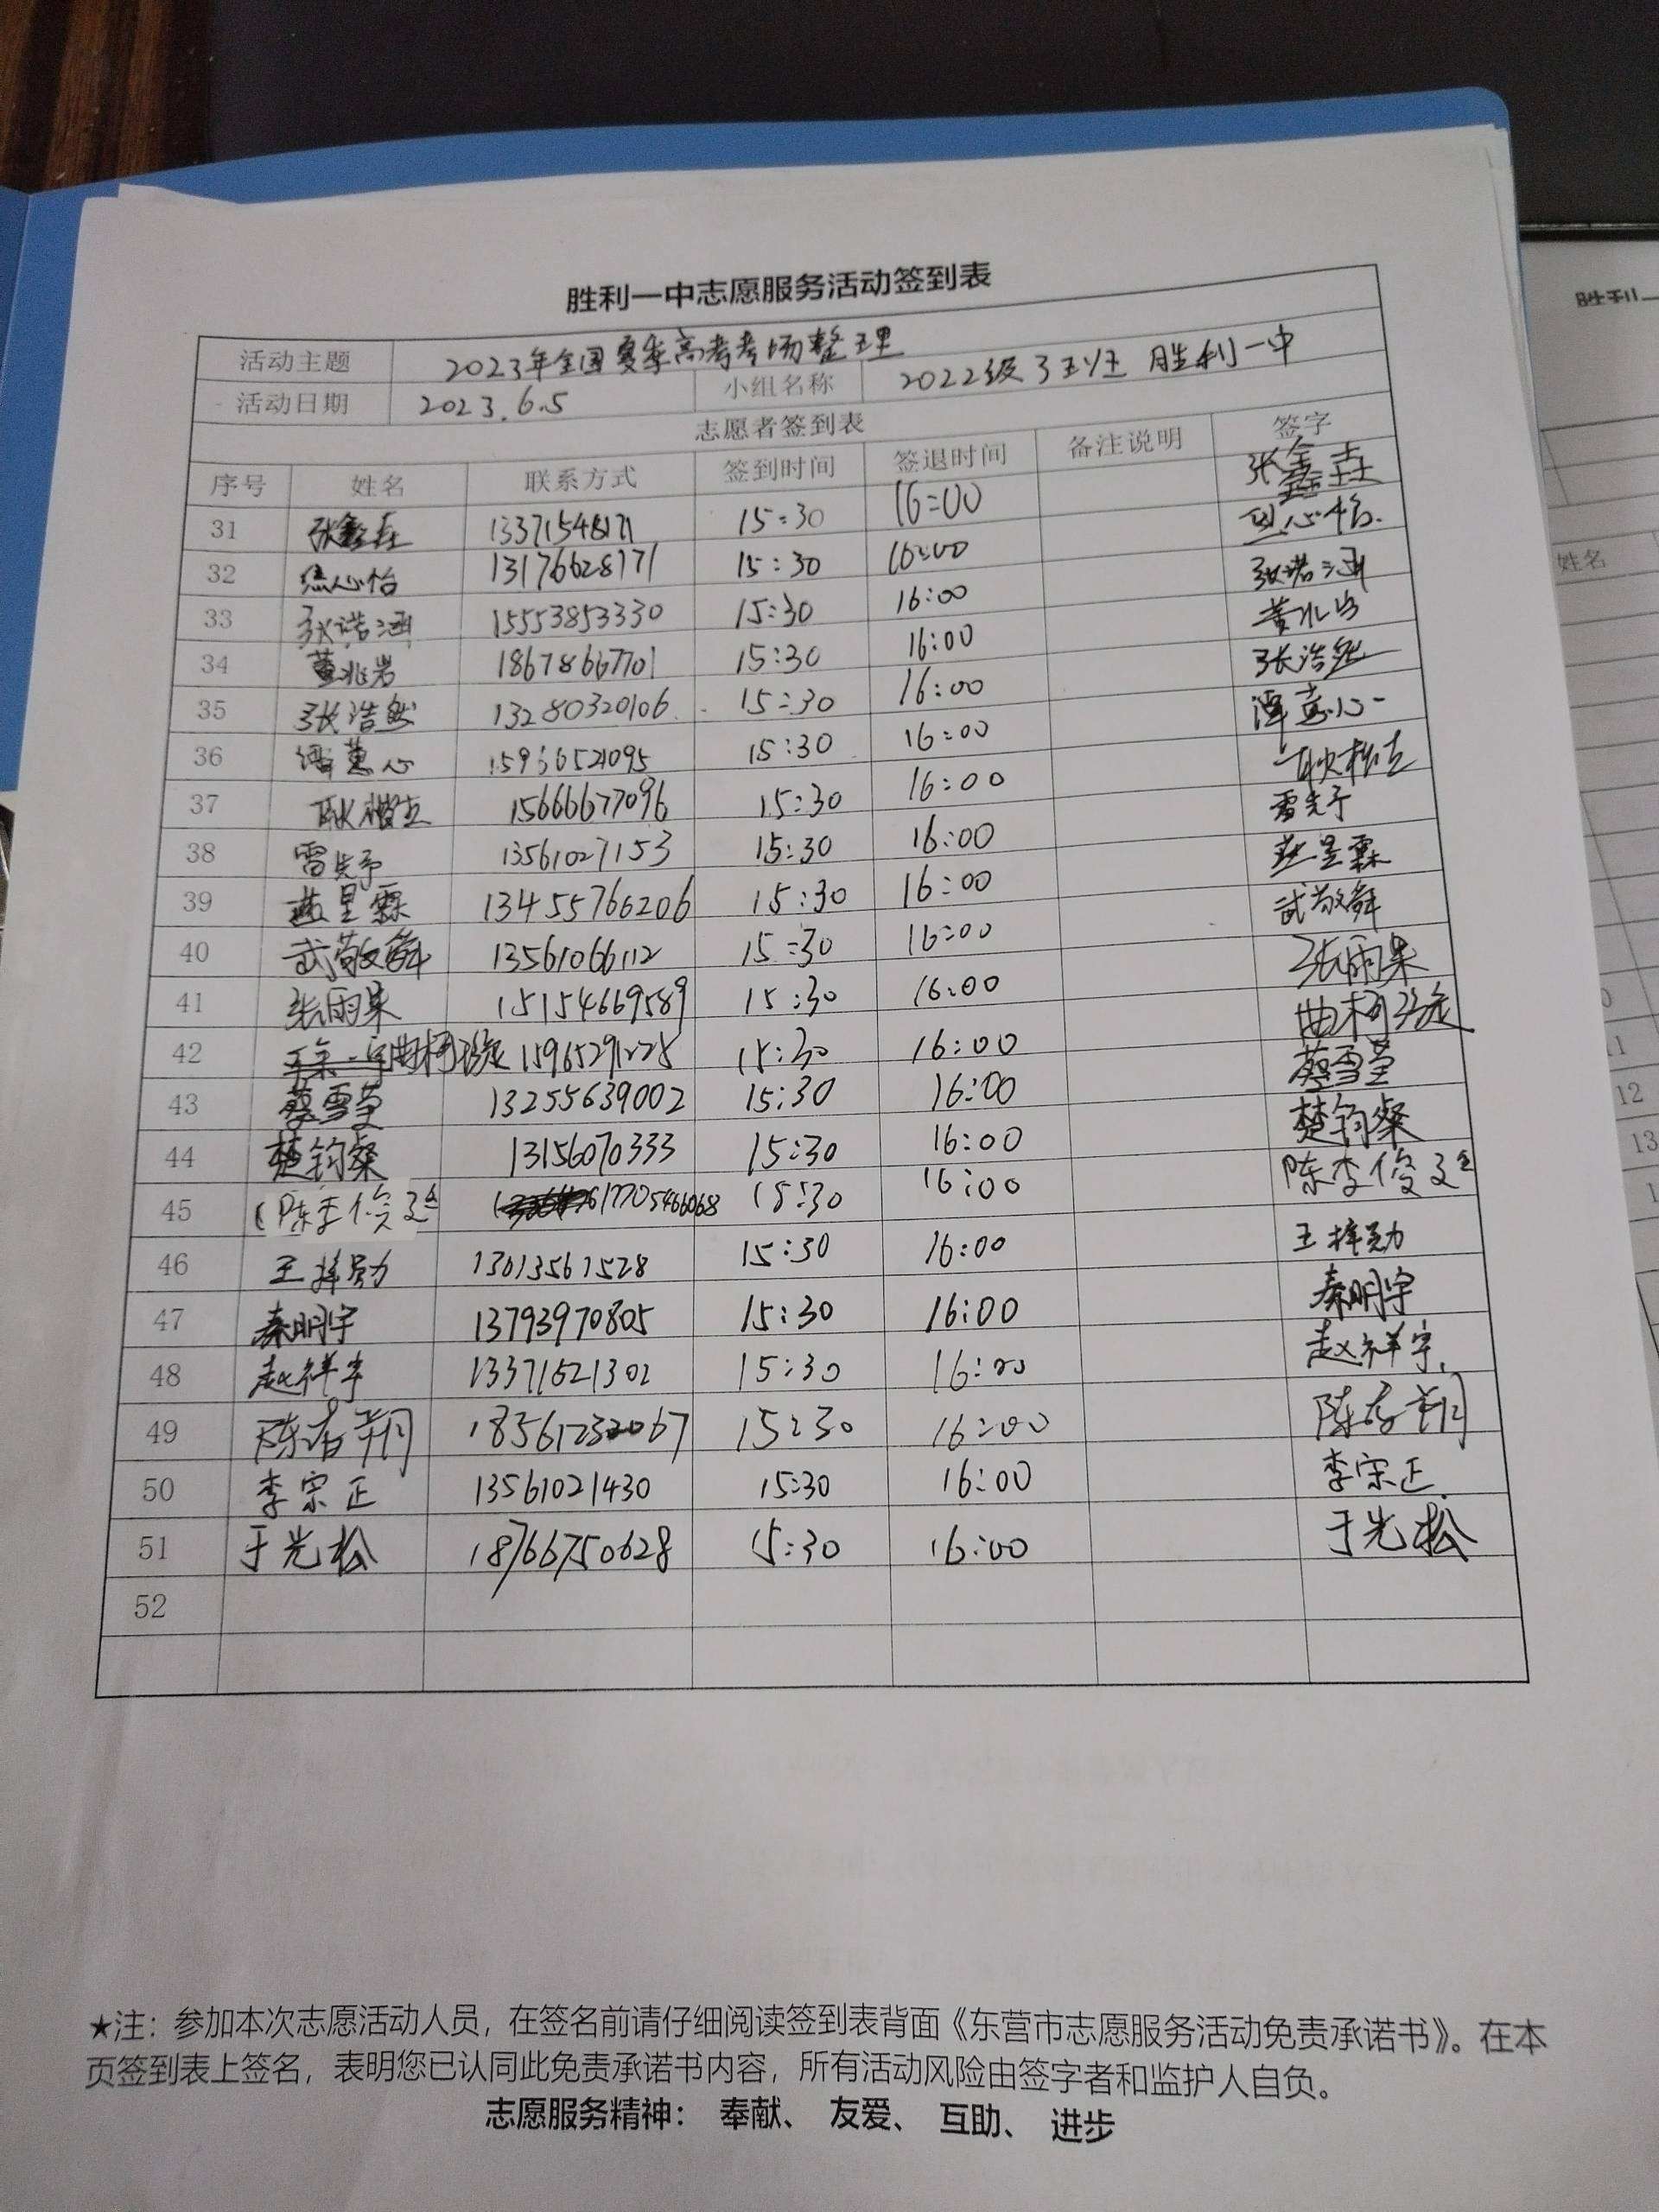 胜利一中志愿服务活动签到表
活动主题 2023年全国夏季高考考场整理
活动日期 2023.6.5 小组名称 2022级3班 胜利一中
志愿者签到表
序号 姓名 联系方式 签到时间 签退时间 备注说明 签字
31 张鑫垚 13371548171 15:30 16:00 张鑫垚
32 心怡 13176628171 15:30 16:00 心怡
33 张诺涵 15553853330 15:30 16:00 张诺涵
34 董兆岩 18678667701 15:30 16:00 董兆岩
35 张浩然 13280320106 15:30 16:00 张浩然
36 谭蕙心 15966521095 15:30 16:00 谭蕙心
37 耿楷 15666677096 15:30 16:00 耿
38 雷先予 13561027153 15:30 16:00 雷先予
39 星霖 13455766206 15:30 16:00 星霖
40 武敬舜 13561066112 15:30 16:00 武敬舜
41 张雨果 15154669589 15:30 16:00 张雨果
42 曲柯璇 15965291225 15:30 16:00 曲柯璇
43 蔡雪莹 13255639002 15:30 16:00 蔡雪莹
44 楚钧粲 13156070333 15:30 16:00 楚钧粲
45 陈李俊 17705466068 15:30 16:00 陈李俊
46 王梓勋 13013561528 15:30 16:00 王梓勋
47 秦明宇 13793970805 15:30 16:00 秦明宇
48 赵祥宇 13371521302 15:30 16:00 赵祥宇
49 陈若翔 15:30 16:00 陈若翔
50 李宗正 13561021430 15:30 16:00 李宗正
51 于光松 18766750628 15:30 16:00 于光松
52
★注：参加本次志愿活动人员，在签名前请仔细阅读签到表背面《东营市志愿服务活动免责承诺书》。在本
页签到表上签名，表明您已认同此免责承诺书内容，所有活动风险由签字者和监护人自负。
志愿服务精神： 奉献、 友爱、 互助、 进步
胜利一
姓名
12
13